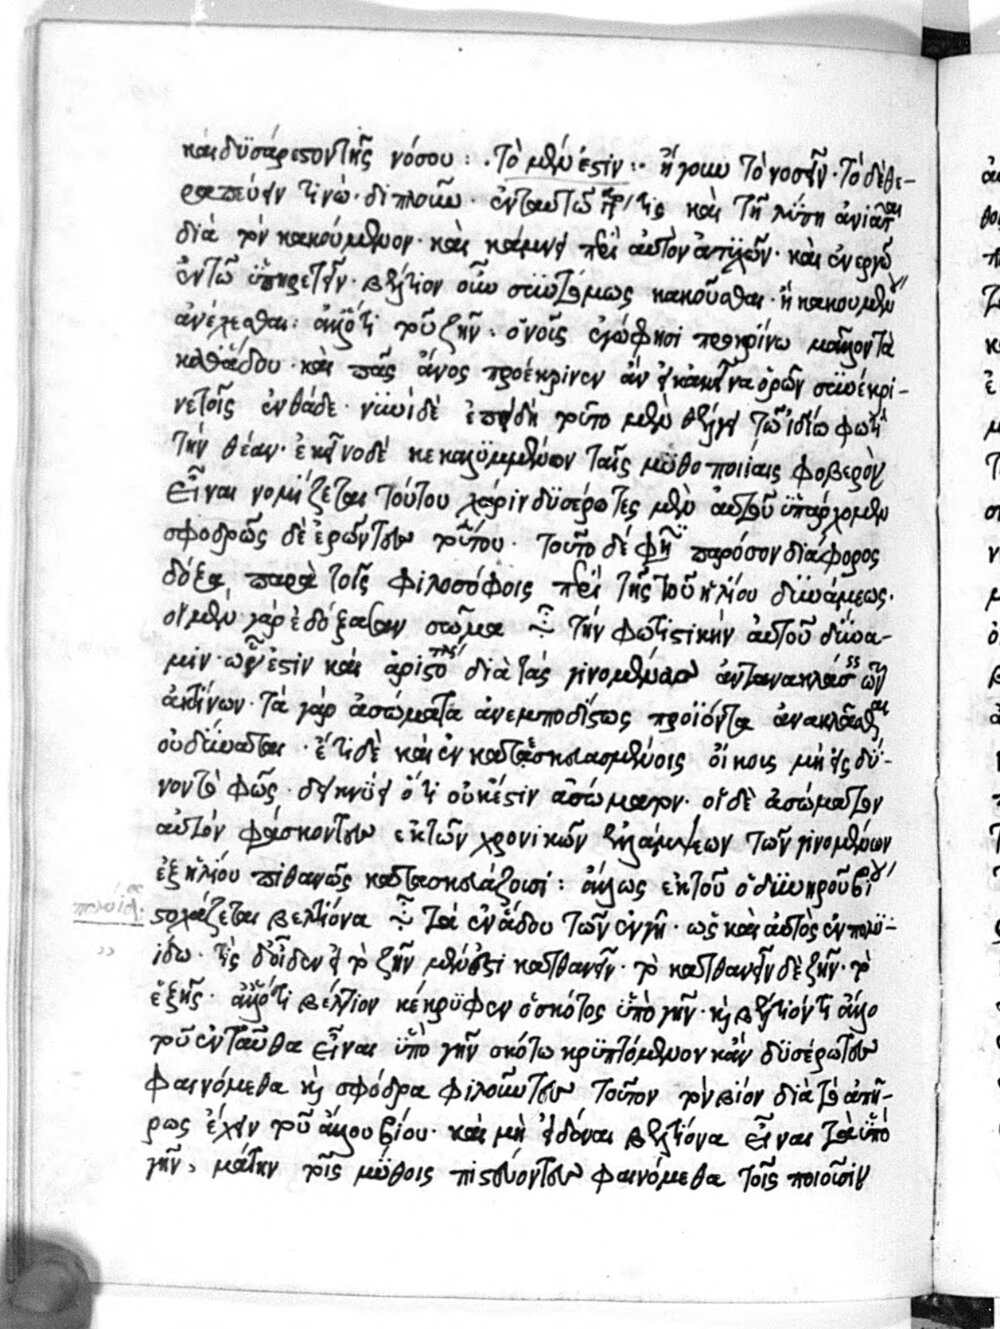 καὶ δυσάρεστον τῆς νόσου :. τὸ μὲν ἐστὶν :. ἤγουν τὸ νοσεῖν · τὸ δὲ θε-
ραπεύειν τινὰ · διπλοῦν · ἐν ταυτῷ τις καὶ τῇ λύπῃ ἀνιᾶται
διὰ τὸν κακούμενον · καὶ κάμνει περὶ αὐτὸν ἀντλῶν · καὶ ἐνεργῶν
ἐν τῷ ὑπηρετεῖν · βέλτιον οὖν συντόμως κακοῦσθαι · ἢ κακουμένου
ἀνέχεσθαι : ἀλλ' ὅτι τοῦ ζῆν · ὁ νοῦς προκρίνω μᾶλλον τὰ
καθ' ᾅδου · καὶ πᾶς ἄνος προέκρινεν ἂν εἰ κἀκεῖνα ὁρῶν συνέκρι-
νε τοῖς ἐνθάδε · νυνὶ δὲ ἐπειδὴ τοῦτο μὲν θέλγει τῷ ἰδίῳ φωτὶ
τὴν θέαν · ἐκεῖνο δὲ κεκαλυμμένον ταῖς μυθοποιίαις φοβερὸν
εἶναι νομίζεται τούτου χάριν δυσέρωτες μὲν αὐτοῦ ὑπάρχομεν
σφοδρῶς δὲ ἐρῶντες τούτου · τοῦτο δέ φησι παρόσον διάφορος
δόξα παρὰ τοῖς φιλοσόφοις περὶ τῆς τοῦ ἡλίου δυνάμεως ·
οἱ μὲν γὰρ ἐδόξασαν σῶμα εἶναι τὴν φωτιστικὴν αὐτοῦ δύνα-
μιν · ὧν ἐστὶν καὶ ἀριστοτέλης διὰ τὰς γινομένας ἀντανακλάσεις τῶν
ἀκτίνων · τὰ γὰρ ἀσώματα ἀνεμποδίστως προϊόντα ἀνακλᾶσθαι
οὐ δύναται · ἔτι δὲ καὶ ἐν κατασκιασμένοις οἴκοις μὴ εἰσδῦ-
νον τὸ φῶς · δεικνύει ὅτι οὐκ ἔστιν ἀσώματον · οἱ δὲ ἀσώματον
αὐτὸν φάσκοντες ἐκ τῶν χρονικῶν ἐλλάμψεων τῶν γινομένων
ἐξ ἡλίου πιθανῶς κατασκευάζουσι : ἄλλως ἐκ τοῦ ὀδυνηροῦ βίου
στοχάζεται βελτίονα εἶναι τὰ ἐν ᾅδου τῶν ἐν γῇ · ὡς καὶ αὐτὸς ἐν πολυ-
ίδῳ · τίς δ' οἶδεν εἰ τὸ ζῆν μέν ἐστι κατθανεῖν · τὸ κατθανεῖν δὲ ζῆν · τὸ
ἑξῆς · ἀλλ' ὅτι βέλτιον κέκρυφεν ὁ σκότος ὑπὸ γῆν · καὶ βέλτιόν τι ἄλλο
τοῦ ἐνταῦθα εἶναι ὑπὸ γῆν σκότῳ κρυπτόμενον κἂν δυσέρωτες
φαινόμεθα καὶ σφόδρα φιλοῦντες τοῦτον τὸν βίον διὰ τὸ ἀπεί-
ρως ἔχειν τοῦ ἄλλου βίου · καὶ μὴ εἰδέναι βελτίονα εἶναι τὰ ὑπὸ
γῆν, μάτην τοῖς μύθοις πιστεύοντες φαινόμεθα τοῖς ποιοῦσιν